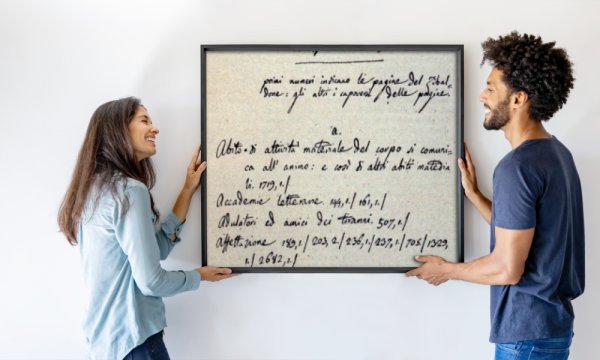 primi numeri indicano le pagine del Zibal-
done: gli altri i capoversi delle pagine.
a.
Abito di attività materiale del corpo si comuni-
ca all' animo: e così di altri abiti materia-
li. 1719, 1./
Accademie letterarie. 144, 1./ 161, 1./
Adulatori ed amici dei tiranni. 507, 1./
Affettazione 189, 1./ 203, 2./ 236, 1./ 237, 1./ 705/ 1329,
1./ 2682, 1./